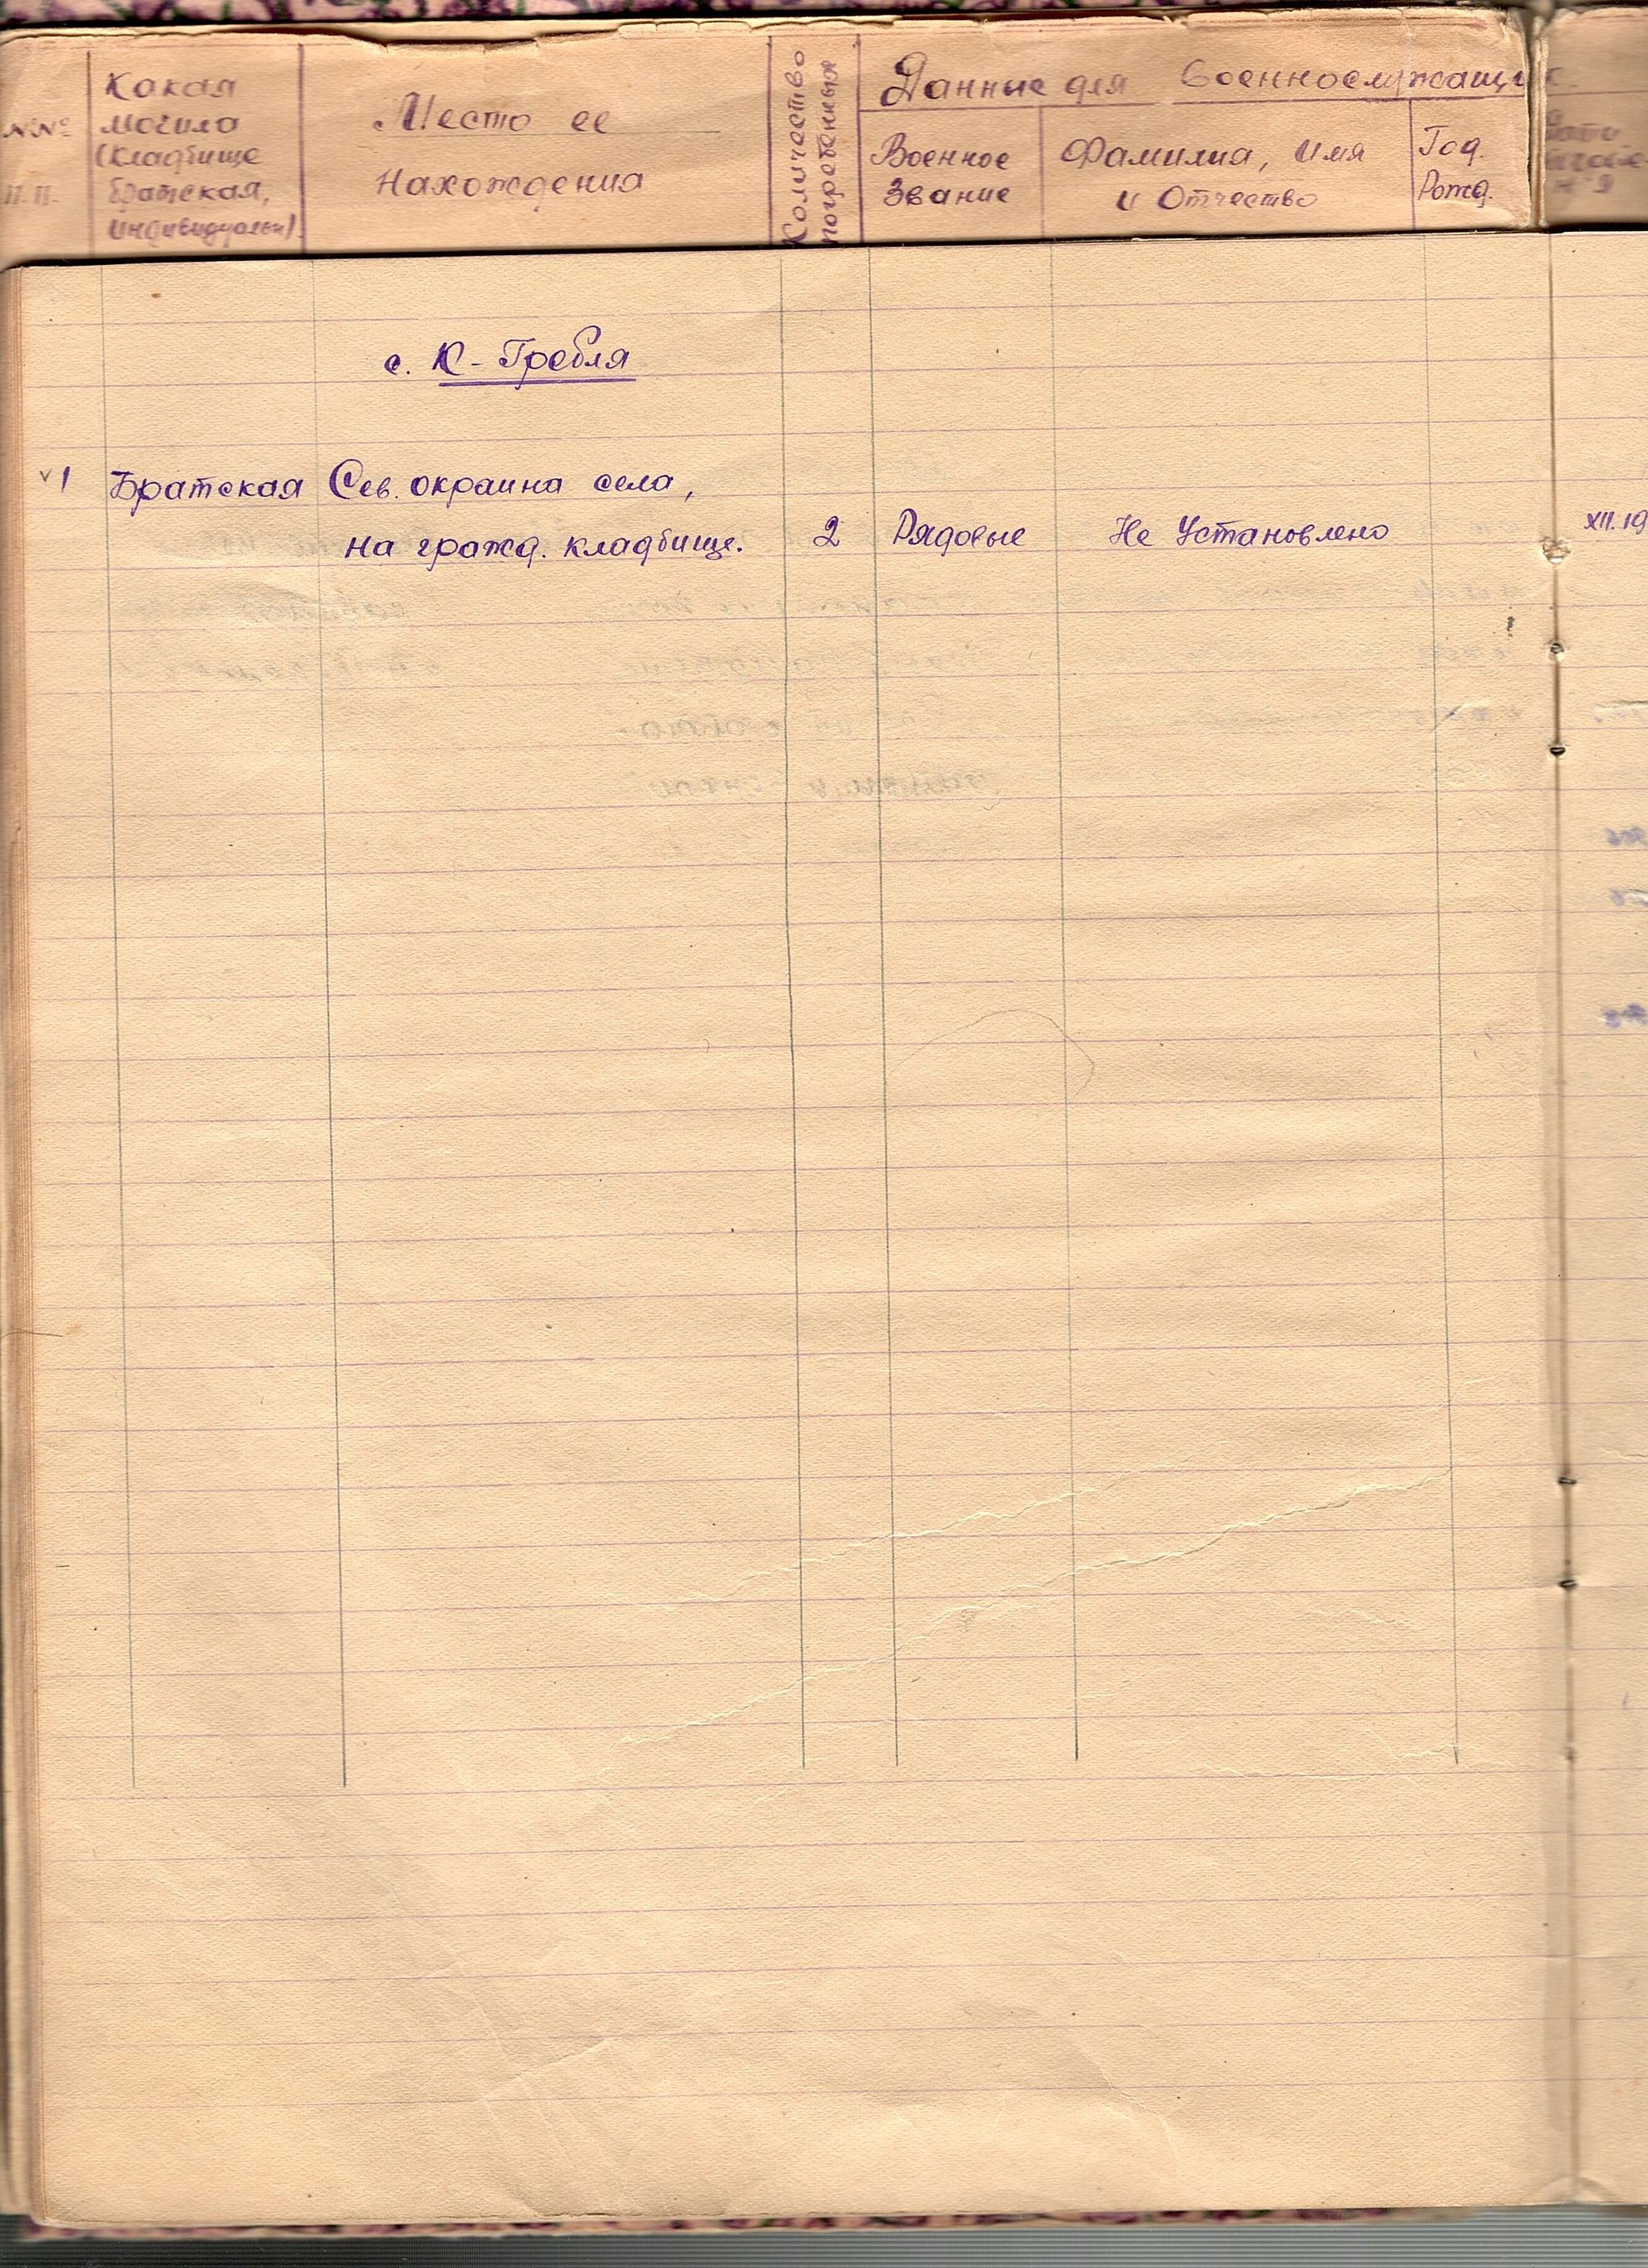 №№
п.п.
Какая
могила
(кладбище
братская,
индивидуальн).
Место ее
Нахождения
Количество
погребенных
Данные для военнослужащи
Военное
Звание
Фамилия, Имя
и Отчество
Год.
Рожд.
с. К-Гребля
v 1 Братская Сев. окраина села,
на гражд. кладбище. 2 Рядовые Не Установлено XII.19